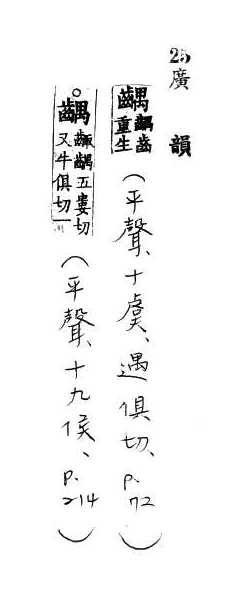 25 廣韻
齵 齵齒重生(平聲、十虞、遇俱切、p.72)
○齵 齱齵五婁切又牛俱切一(平聲、十九侯、p.214)